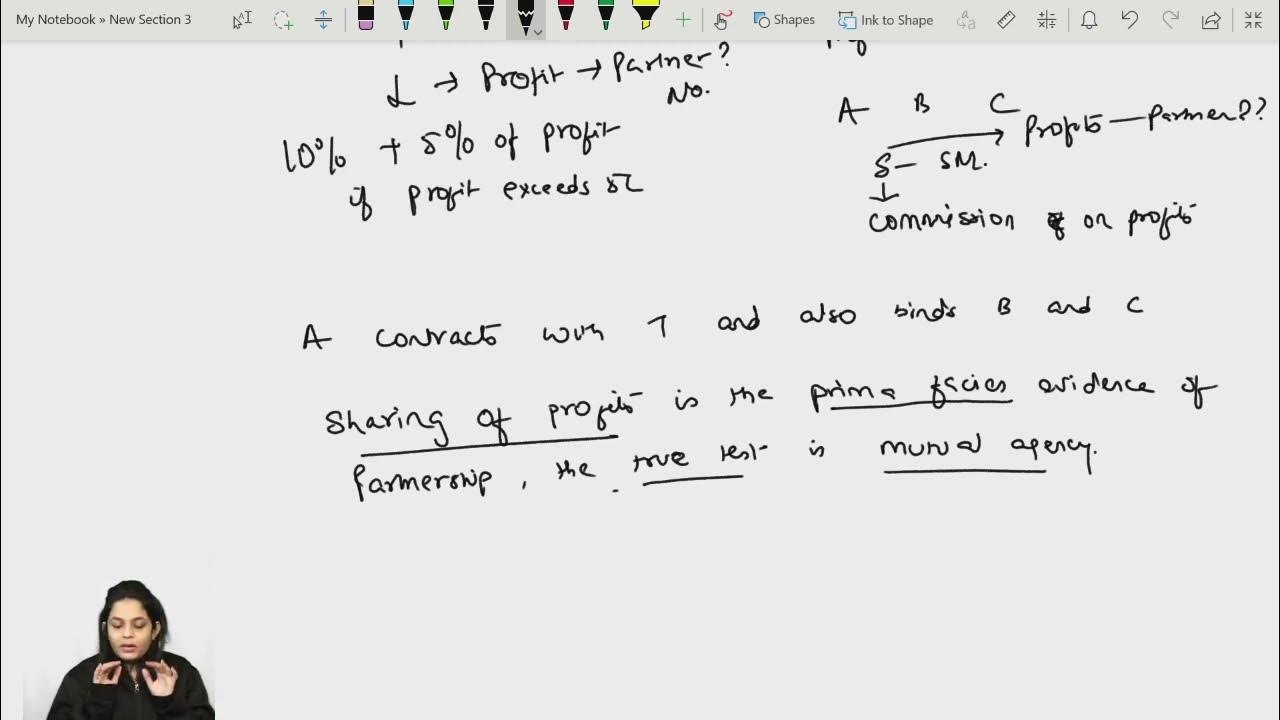 My Notebook » New Section 3
Shapes
Ink to Shape
L → Profit → Partner?
No.
10% + 5% of profit
if profit exceeds 5L
A B C
Profits — Partner??
S — SM.
commission or profits
A contracts with T and also binds B and C
Sharing of profits is the prima facies evidence of
Partnership, the true test is mutual agency.